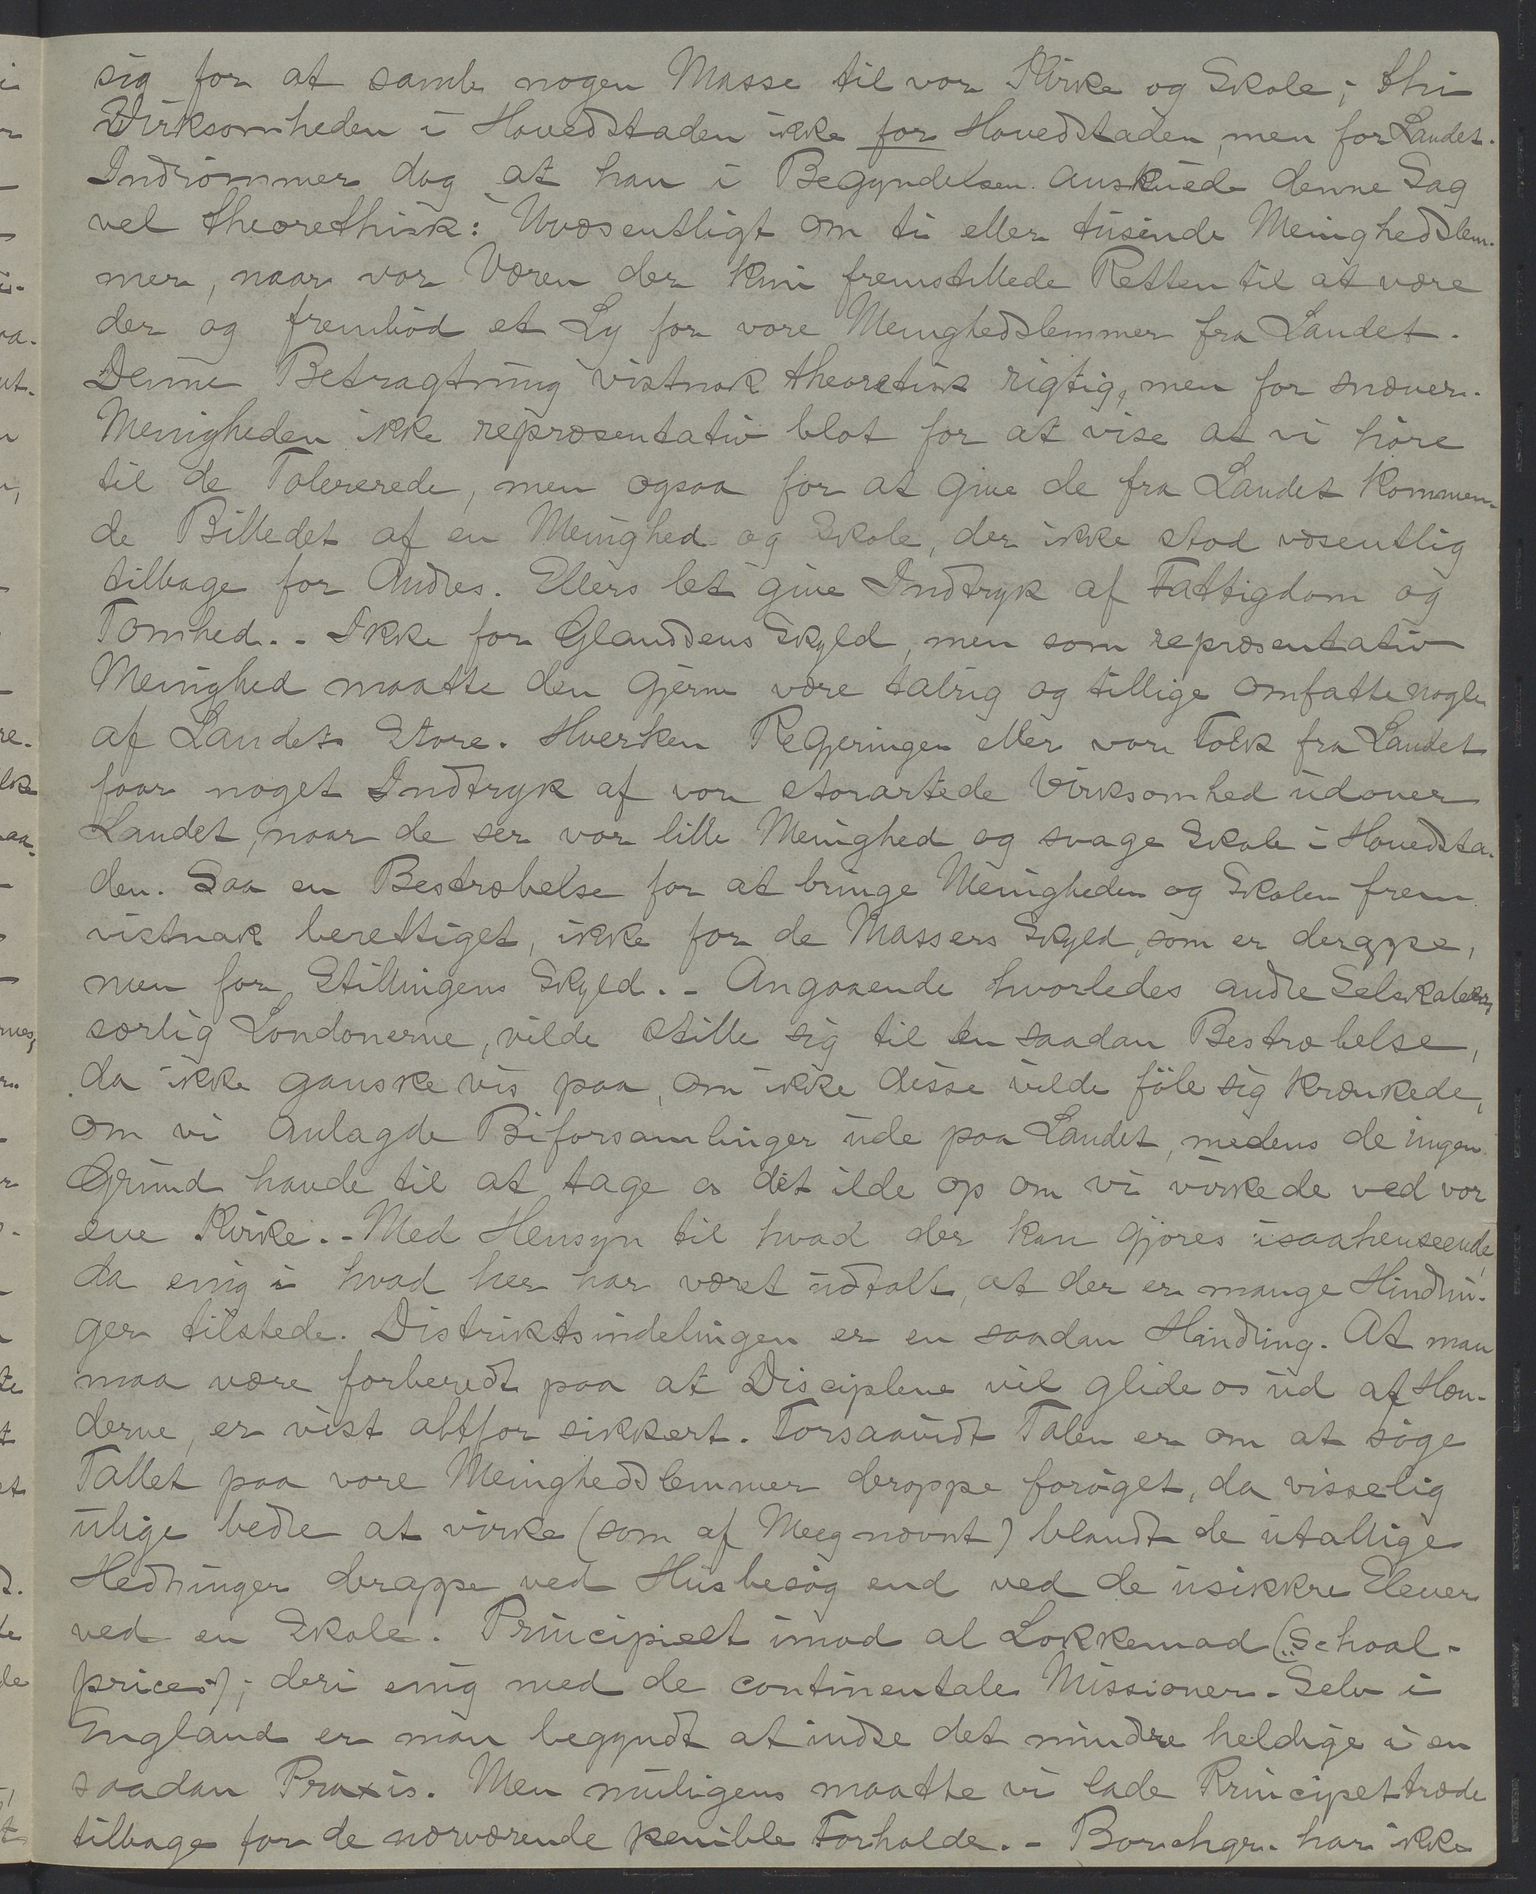 sig for at samle nogen Masse til vor Kirke og Skole; thi
Virksomheden i Hovedstaden ikke for Hovedstaden, men for Landet.
Indrömmer dog at han i Begyndelsen anskuede denne Sag
vel theorethisk: Uvæsentligt om ti eller tusinde Menighedslem-
mer, naar vor Væren der kun fremstillede Retten til at være
der og frembød et Ly for vore Menighedslemmer fra Landet.
Denne Betragtning vistnok theoretisk rigtig, men for snæver.
Menigheden ikke repræsentativ blot for at vise at vi höre
til de Tolererede, men ogsaa for at give de fra Landet kommen-
de Billedet af en Menighed og Skole, der ikke stod væsentlig
tilbage for Andres. Ellers let give Indtryk af Fattigdom og
Tomhed. - Ikke for Glandsens Skyld, men som repræsentativ
Menighed maatte den gjerne være talrig og tillige omfatte nogle
af Landets Store. Hverken Regjeringen eller vore Folk fra Landet
faar noget Indtryk af vor storartede Virksomhed udover
Landet, naar de ser vor lille Menighed og svage Skole i Hovedsta-
den. Saa en Bestræbelse for at bringe Menigheden og Skolen frem
vistnok berettiget, ikke for de Massers Skyld, som er deroppe,
men for Stillingens Skyld. - Angaaende hvorledes andre Selskaber,
særlig Londonerne, vilde stille sig til en saadan Bestræbelse,
da ikke ganske vis paa, om ikke disse vilde föle sig krænkede,
om vi anlagde Biforsamlinger ude paa Landet, medens de ingen
Grund havde til at tage os det ilde op om vi virkede ved vor
ene Kirke. - Med Hensyn til hvad der kan gjöres isaahenseende,
da enig i hvad her har været udtalt, at der er mange Hindrin-
ger tilstede. Distriktsindelingen er en saadan Hindring. At man
maa være forberedt paa at Disciplene vil glide os ud af Hæn-
derne, er vist altfor sikkert. Forsaavidt Talen er om at söge
Tallet paa vore Menighedslemmer deroppe foröget, da visselig
ulige bedre at virke (som af Meeg nævnt) blandt de utallige
Hedninger deroppe ved Husbesög end ved de usikkre Elever
ved en Skole. Principielt imod al Lokkemad ("School-
prices"); deri enig med de continentale Missioner. Selv i
England er man begyndt at indse det mindre heldige i en
saadan Praxis. Men muligens maatte vi lade Principet træde
tilbage for de nærværende penible Forholde. - Borchgr. har ikke